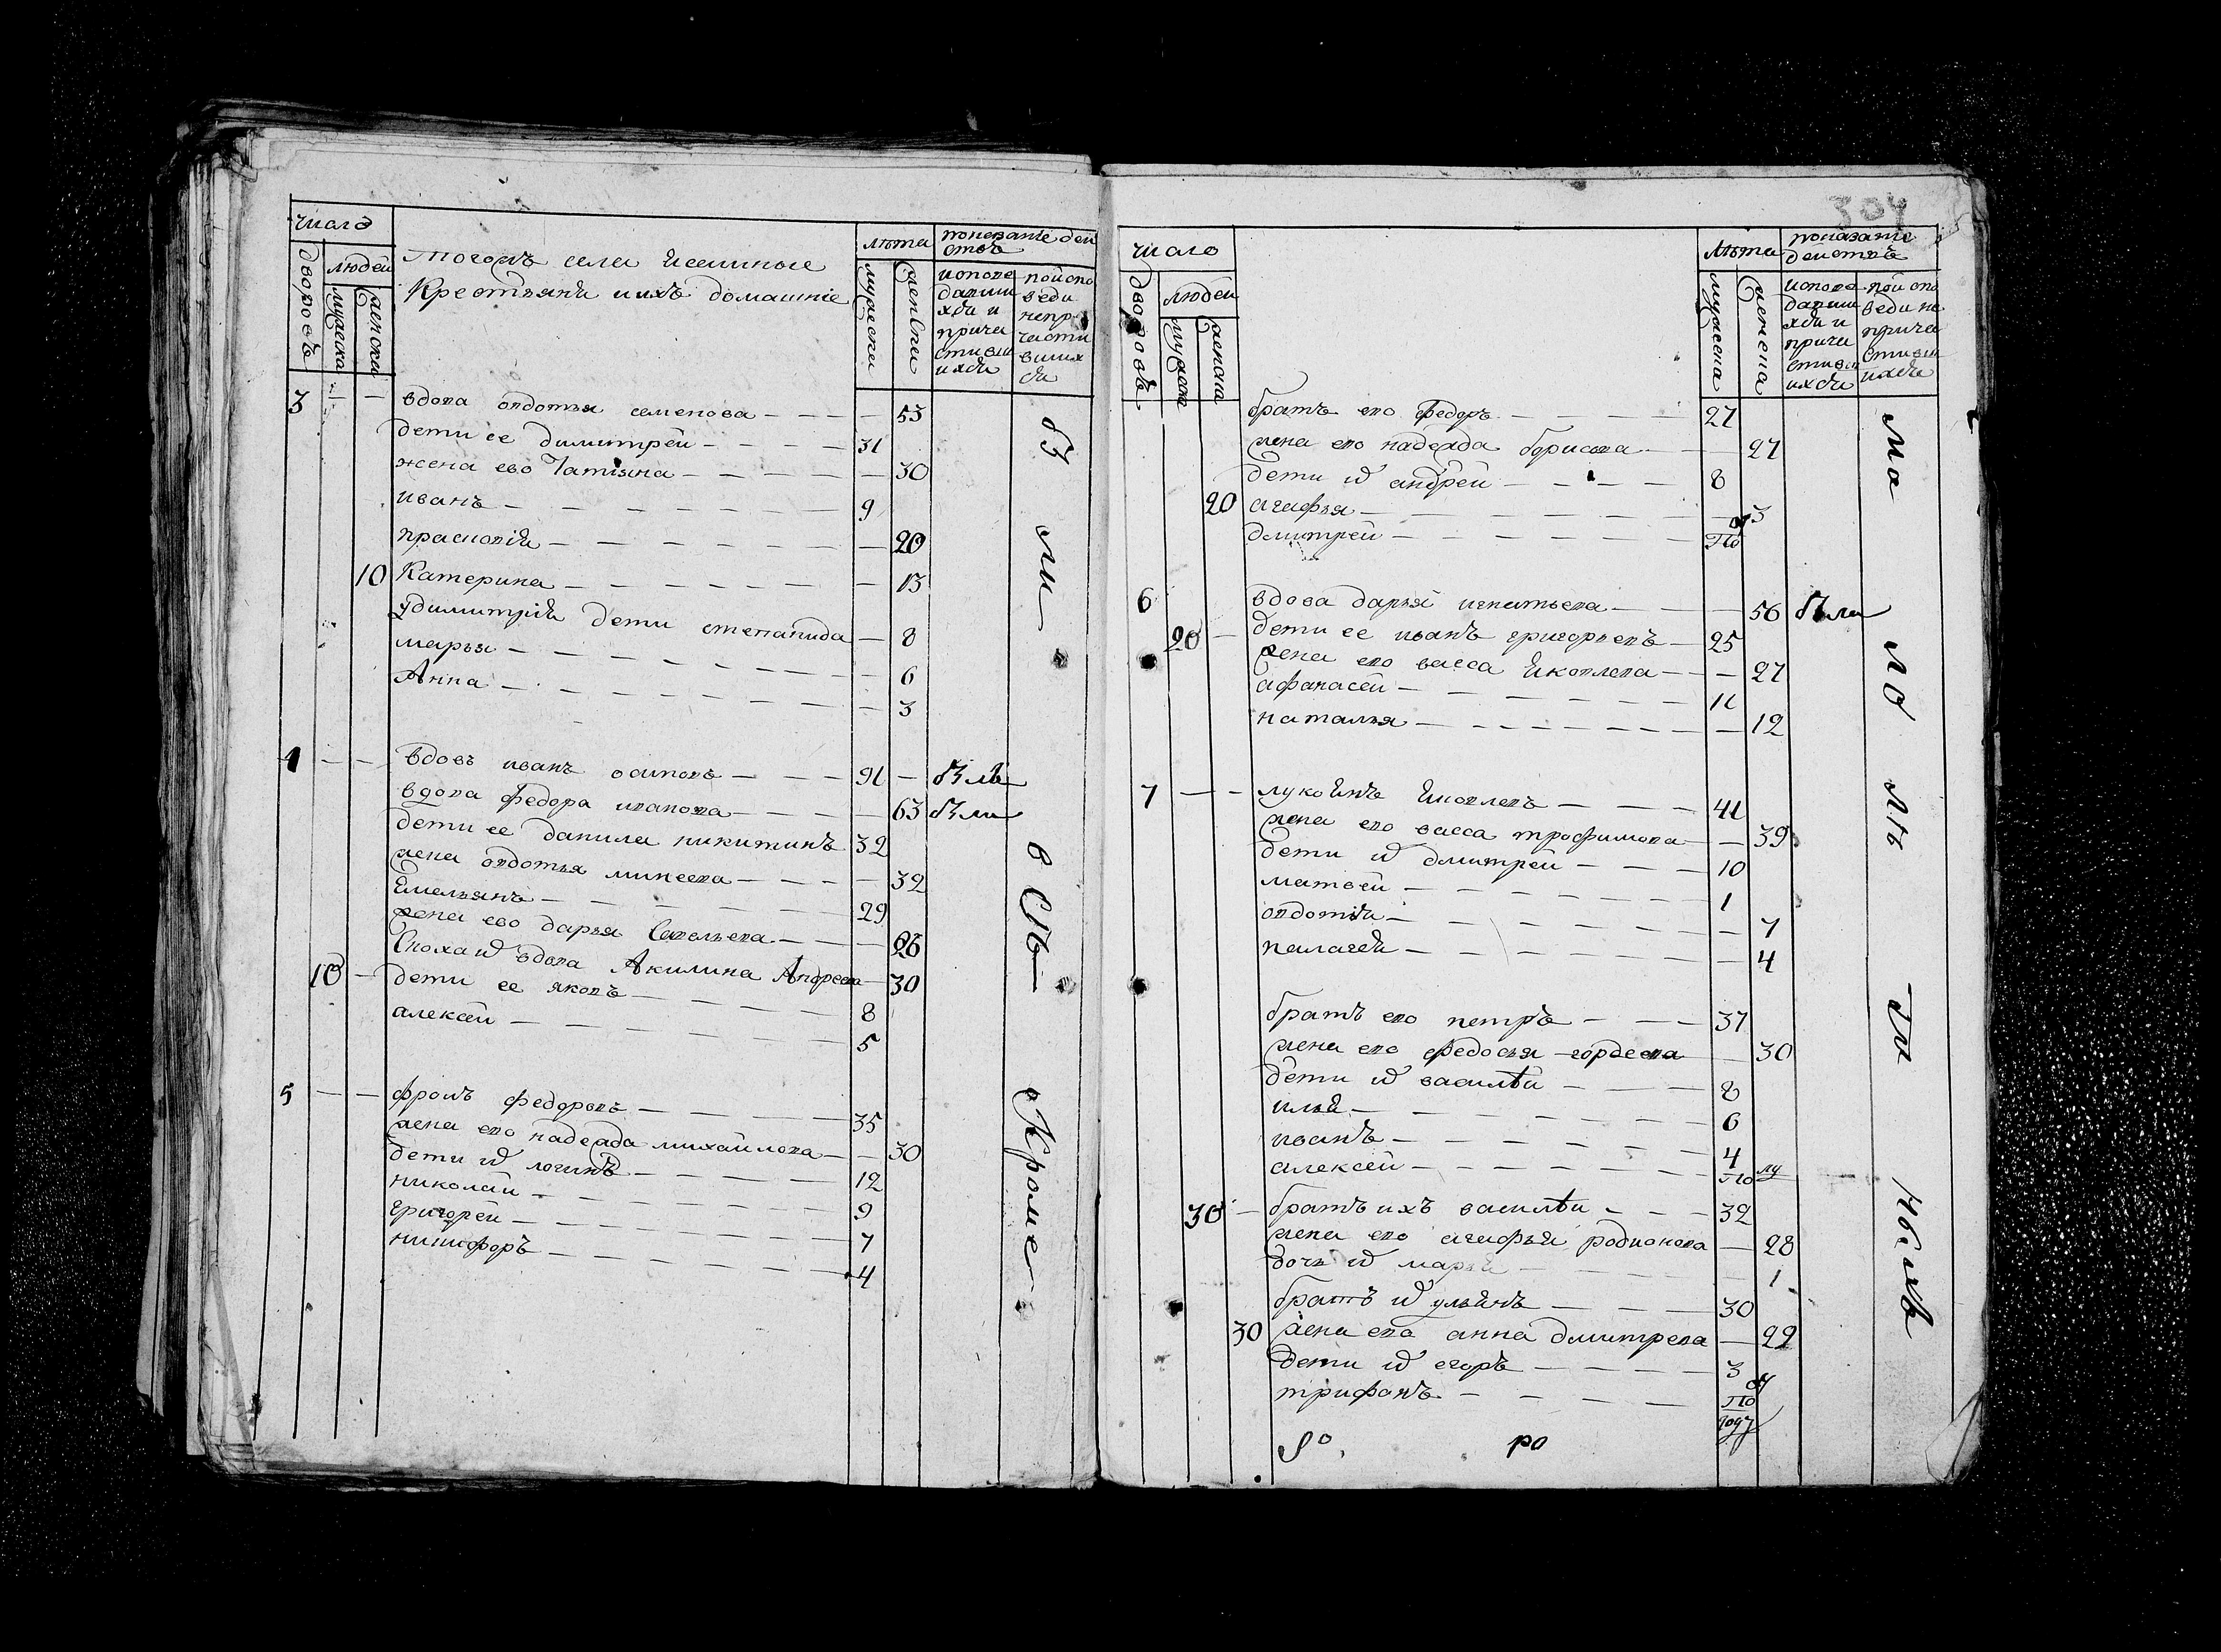 число
дворовъ
людей
мужеска
женска
тогожъ села
Крестьяня ихъ домашние
лѣта
мужески
женски
показание дей
ствъ
исповѣ
давши
хся и
прича
стивш
ихся
по испо
веди
непри
части
вших
ся
3 — — вдова овдотья семенова — — — — 53
дети ее димитрей — — — — 31
жена ево Татияна — — — — — 30
иванъ — — — — — — — 9
прасковия — — — — — — — 20
10 Катерина — — — — — — — 13
У димитрия дети степанида — 8
марья — — — — — — — — 6
Анна — — — — — — — — 3
4 — — вдовъ иванъ осиповъ — — — 91 — были
вдова федора иванова — — — — 63 были
дети ее данила никитинъ 32
жена овдотья минеева — — — — 32
Емельянъ — — — — — — 29
жена ево дарья Савельева — — — 26
Сноха ихъ вдова Акилина Андреева — 30
10 — дети ее яковъ — — — — — 8
алексей — — — — — — — 5
5 — — фролъ федоровъ — — — — 35
жена ево надежда михайлова — — 30
дети их логинъ — — — — — 12
николай — — — — — — — 9
григорей — — — — — — — 7
никифоръ — — — — — — 4
бы
ли
всѣ
Кроме
304
число
дворовъ
людей
мужеска
женска
лѣта
мужеска
женска
показание
действъ
исповѣ
давши
хся и
причи
стивш
ихся
по испо
веди не
прича
стивш
ихся
братъ ево федоръ — — — — 27
жена ево надежда борисова — — 27
дети их андрей — — — — 8
20 агафья — — — — — — — 3
дмитрей — — — — — — По
лу
6 вдова дарья игнатьева — — — 56 были
20 — дети ее иванъ григорьевъ — 25
жена ево васса Яковлева — — — 27
афанасей — — — — — — 11
наталья — — — — — — — — 12
7 — — лукоянъ Яковлевъ — — — 41
жена ево васса трофимова — — 39
дети их дмитрей — — — 10
матвей — — — — — — 1
овдотья — — — — — — — 7
пелагея — — — — — — — 4
братъ ево петръ — — — 37
жена ево федосья гордеева — 30
дети их василѣй — — — 8
илья — — — — — — — 6
иванъ — — — — — — 4
алексей — — — — — — — По лу
30 — братъ ихъ василѣй — — — 32
жена ево агафья родионова — 28
дочь их марья — — — — — 1
братъ их ульянъ — — — 30
30 жена ево анна дмитрева — 22
дети их егоръ — — — — 3
трифонъ — — — — По лу
году
ма
ло
лѣ
тн
ныхъ
ро